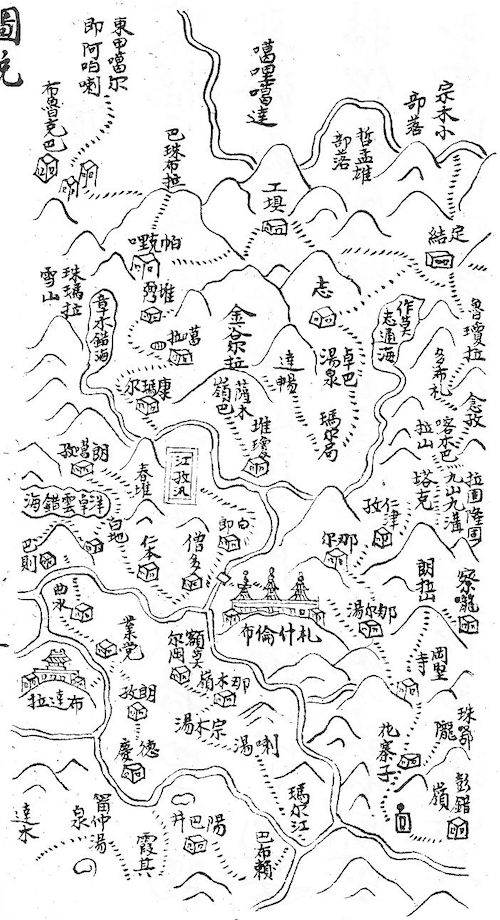 圖說
宗木小
部落
哲孟雄
部落
噶哩噶達
東甲噶尔
即阿咱喇
布魯克巴
巴珠布拉
工埧
定結
帕克哩
志
魯瓊拉
作莫
志通海
堆
葛拉
金谷尔拉
章木錯海
珠瑪拉
雪山
卓巴
湯泉
達暢
瑪尔局
多布札
念孜
喀木巴
拉山
康瑪尔
薩木
嶺巴
堆瓊
江孜汛
朗葛孜
春堆
塔克
九山九溝
拉固隆固
仁津孜
那尔
洋卓雲錯海
白地
仁本
僧多
白即
巴則
朗拉山
察嚨
那尔湯
札什倫布
曲水
業党
額莫
尔岡
那木嶺
岡堅
寺
布達拉
朗孜
宗木湯
喇湯
珠鄂隴
花寨子
德慶
瑪尔江
彭錯
嶺
達木
笛仲湯
泉
霞其
陽巴井
巴布賴